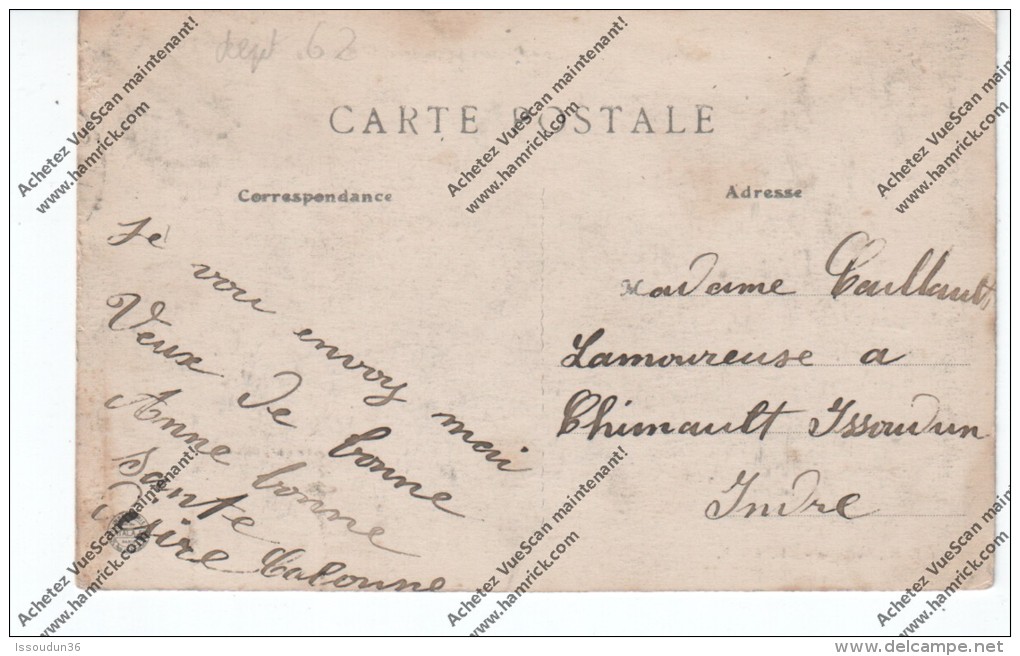 dept 62
CARTE POSTALE
Correspondance
Adresse
Je
vou envoy mai
Veux de bonne
Anne bonne
Sante
Desire Calonne
Madame Caillault
Lamoureuse a
Chimault Issoudun
Indre
Achetez VueScan maintenant!
www.hamrick.com
Achetez VueScan maintenant!
www.hamrick.com
Achetez VueScan maintenant!
www.hamrick.com
Achetez VueScan maintenant!
www.hamrick.com
Achetez VueScan maintenant!
www.hamrick.com
Achetez VueScan maintenant!
www.hamrick.com
Issoudun36
www.delcampe.net